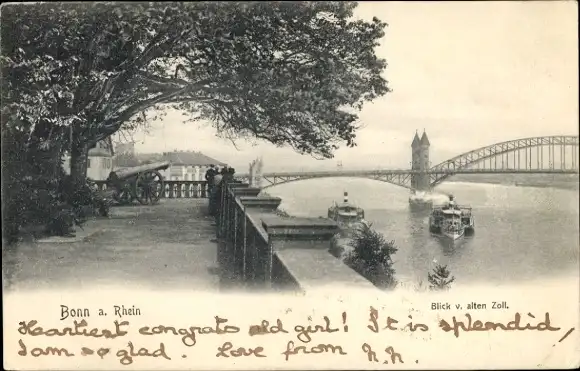 Bonn a. Rhein
Blick v. alten Zoll.
Heartiest congrats old girl! It is splendid,
I am so glad. Love from